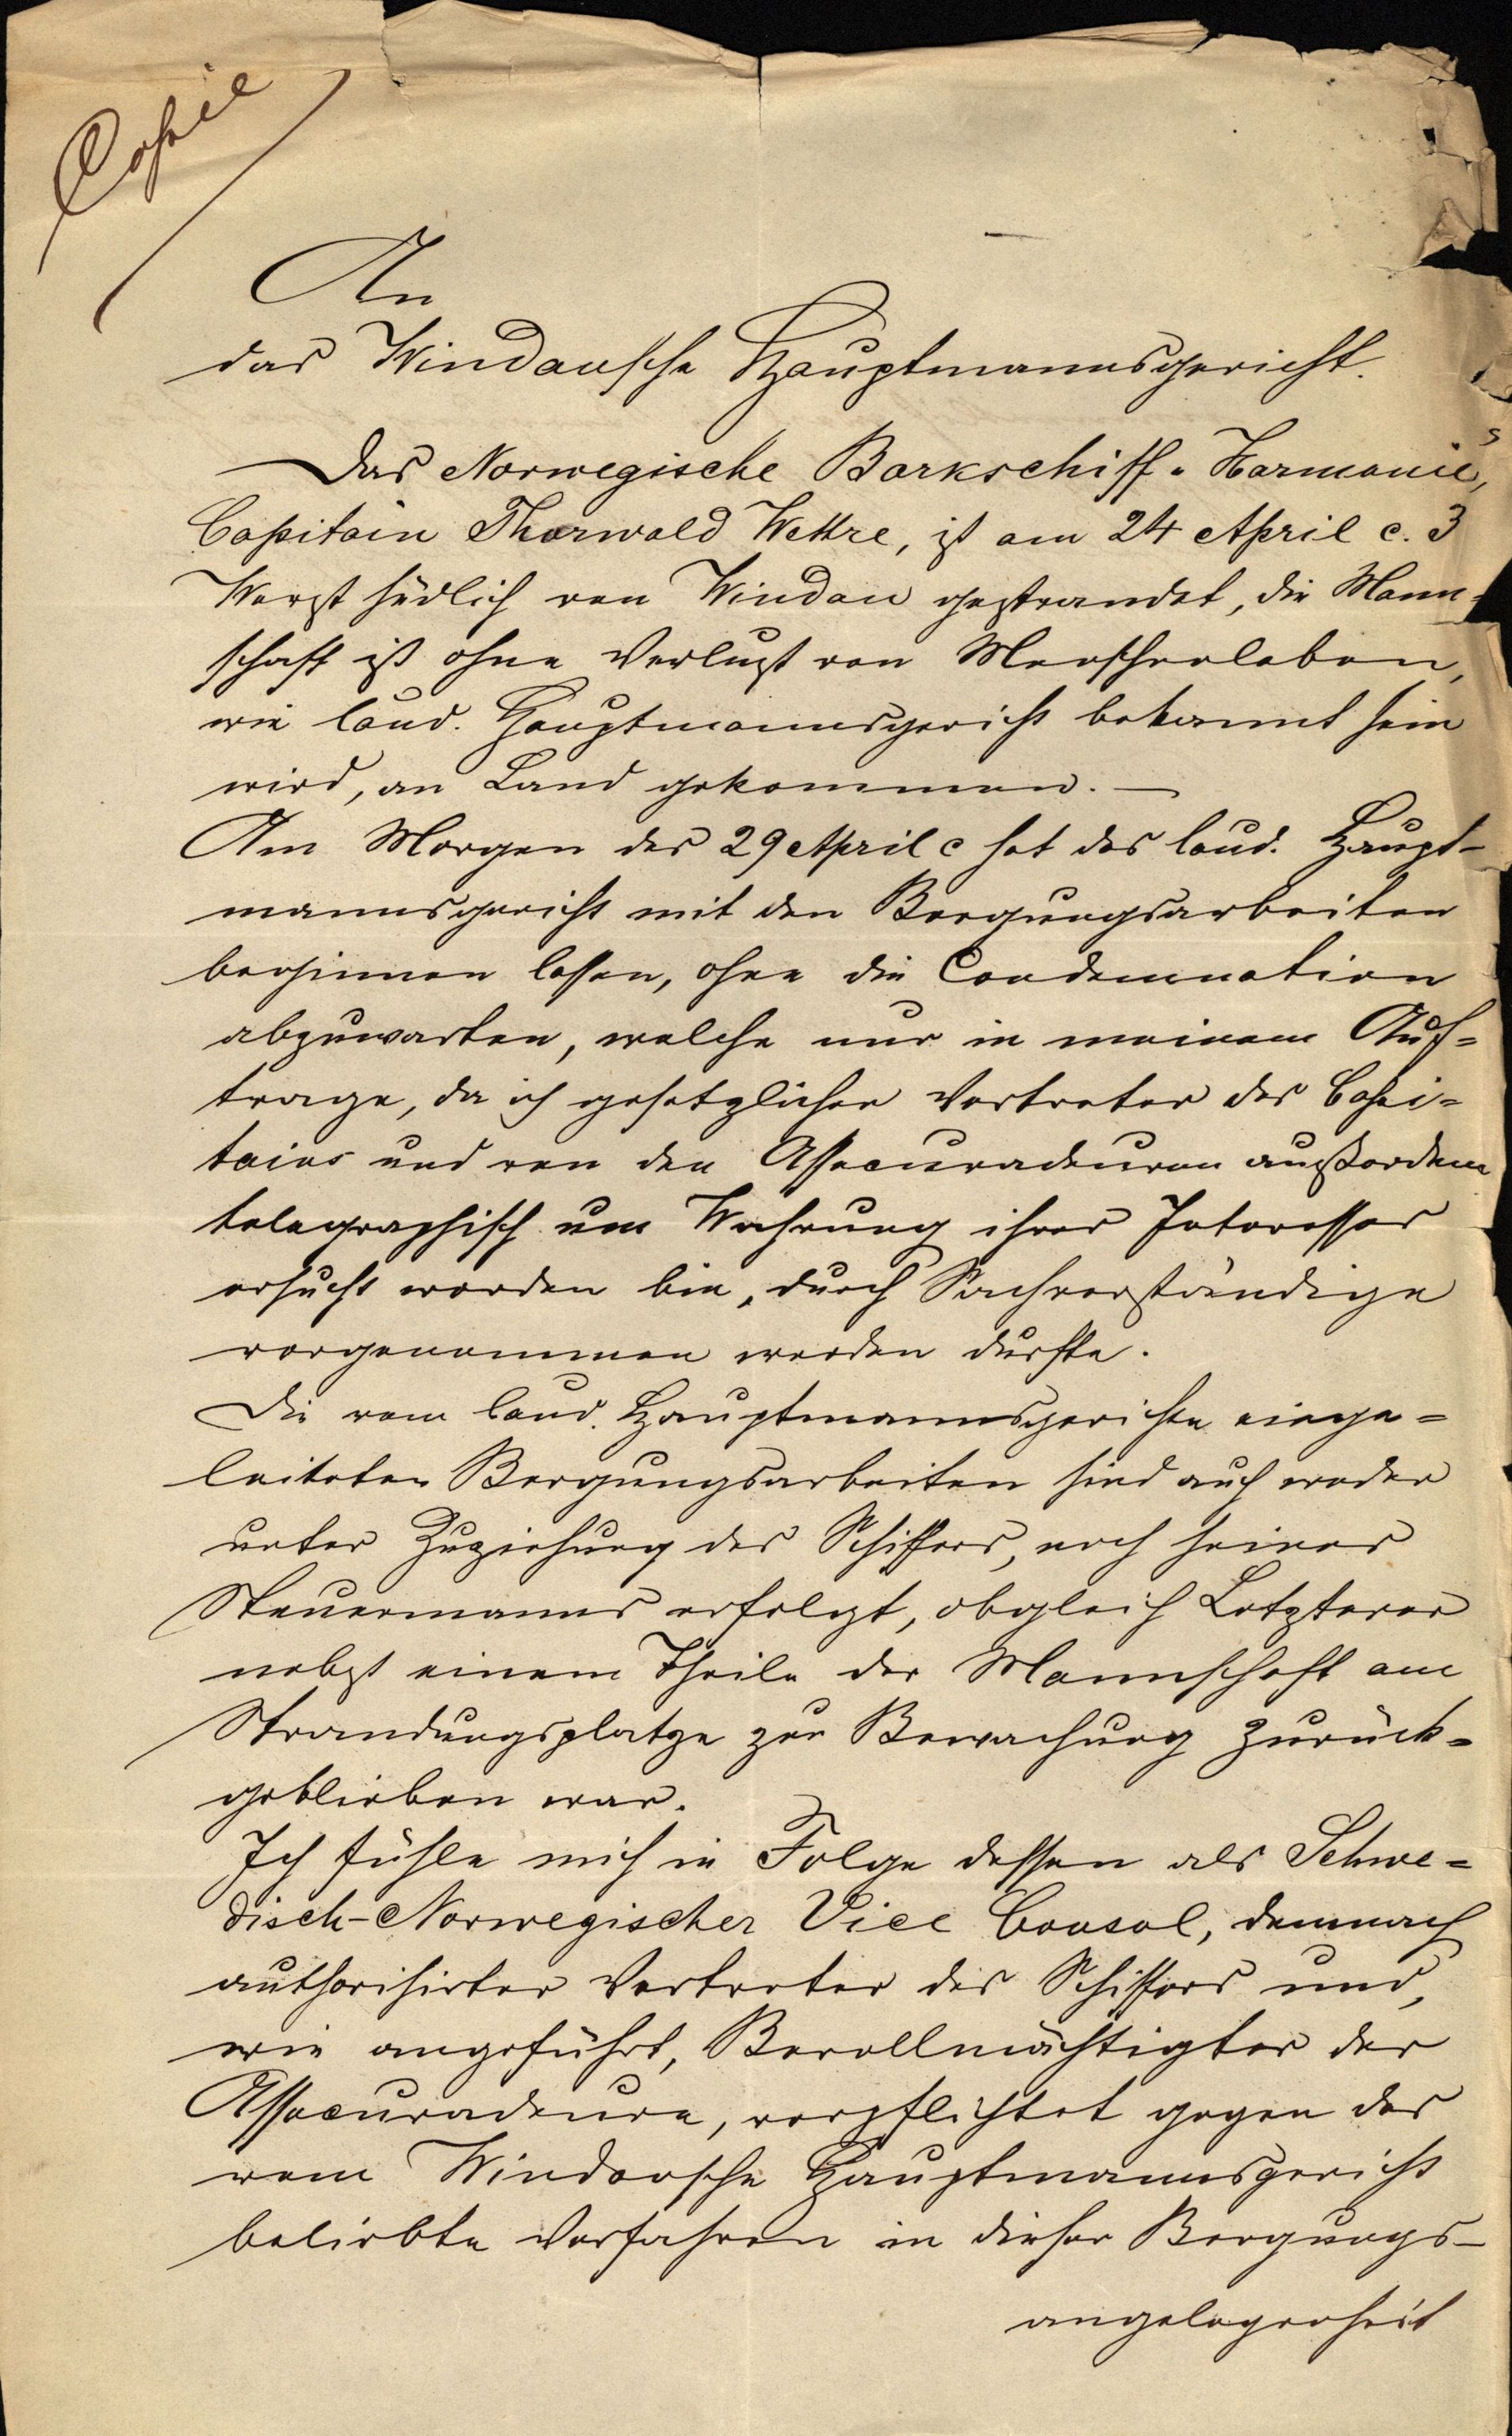 Copie
An
das Windausche Hauptmannsgericht.
Das Norwegische Barkschiff "Harmonie",
Capitain Thorwald Wettre, ist am 24 April c. 3
Werst südlich von Windau gestrandet, die Mann-
schaft ist ohne Verlust von Menschenleben,
wie laud. Hauptmannsgericht bekannt sein
wird, an Land gekommen. —
Am Morgen des 29 April c hat das laud. Haupt-
mannsgericht mit den Bergungsarbeiten
beginnen lassen, ohne die Condemnation
abzuwarten, welche nur in meinem Auf-
trage, da ich gesetzlicher Vertreter des Capi-
tains und von den Assecuradeuren außerdem
telegraphisch um Wahrung ihrer Interessen
ersucht worden bin, durch Sachverständige
vorgenommen werden durfte.
Die vom laud. Hauptmannsgerichte einge-
leiteten Bergungsarbeiten sind auch weder
unter Zuziehung des Schiffers, noch seines
Steuermanns erfolgt, obgleich Letzterer
nebst einem Theile der Mannschaft am
Strandungsplatze zur Bewachung zurück-
geblieben war.
Ich fühle mich in Folge dessen als Schwe-
disch-Norwegischer Vice Consul, demnach
authorisirter Vertreter des Schiffers und,
wie angeführt, Bevollmächtigter der
Assecuradeure, verpflichtet gegen das
vom Windausche Hauptmannsgericht
beliebte Verfahren in dieser Bergungs-
angelegenheit